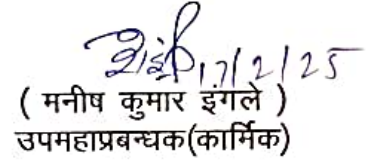 17/2/25
( मनीष कुमार इंगले )
उपमहाप्रबन्धक(कार्मिक)